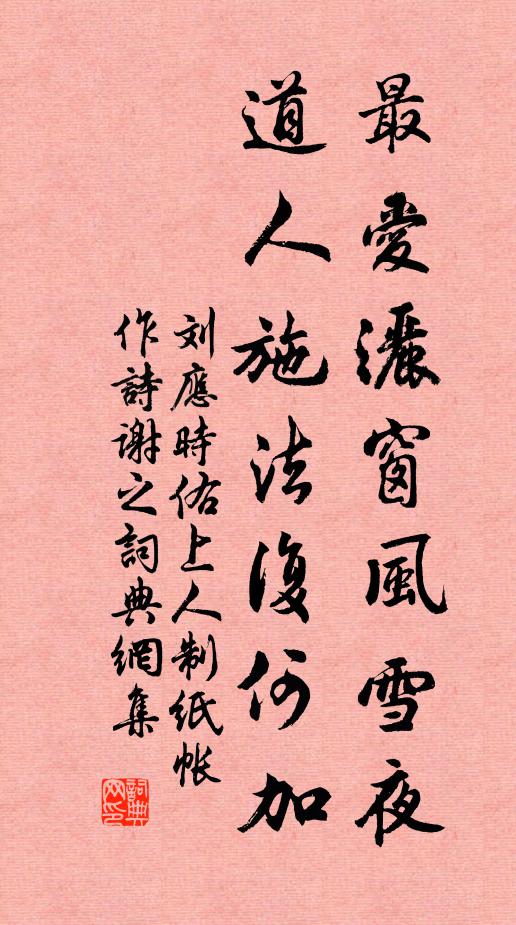 最愛灑窗風雪夜
道人施法復何加
刘應時佑上人制紙帐
作詩謝之詞典網集
詞典网印